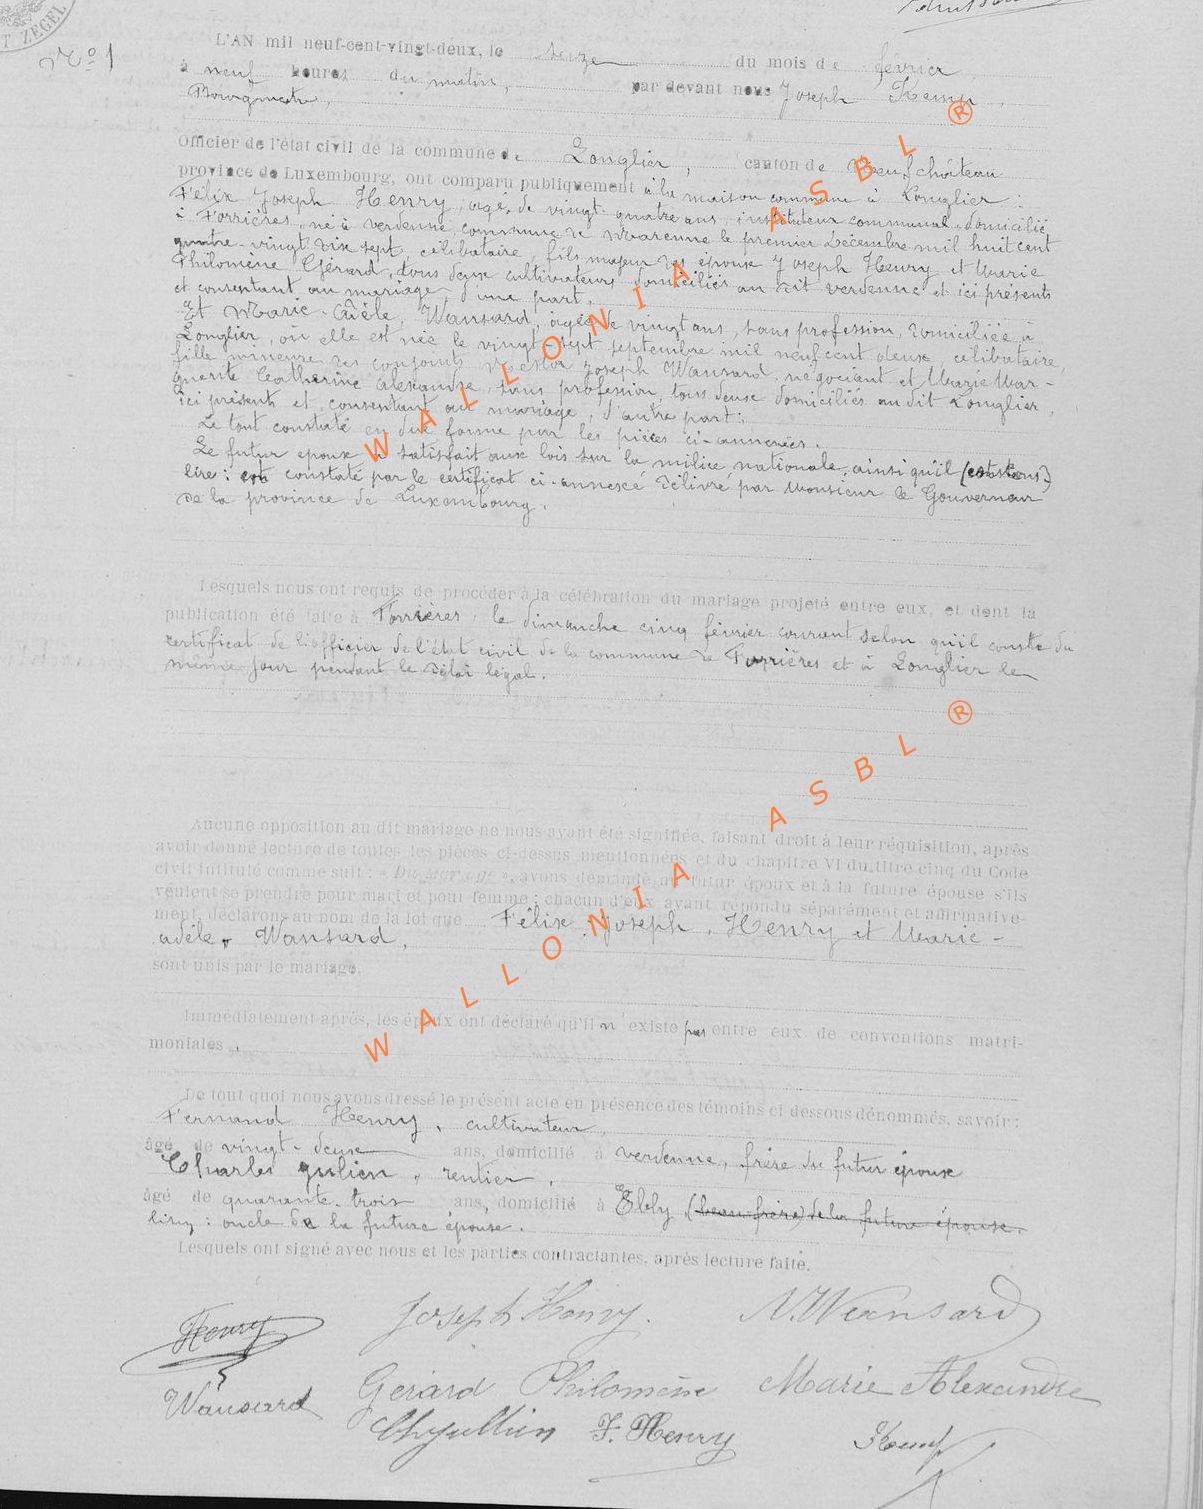 T ZEGEL
No 1
L'AN mil neuf-cent-vingt-deux, le seize du mois de février
à neuf heures du matin, par devant nous Joseph Kemp,
Bourgmestre,
Officier de l'état civil de la commune de Longlier, canton de Neufchâteau
province de Luxembourg, ont comparu publiquement à la maison commune à Longlier :
Félix Joseph Henry, âgé de vingt-quatre ans, instituteur communal, domicilié
à Forrières, né à Verdenne, commune de Marenne le premier décembre mil huit cent
quatre-vingt dix sept, célibataire, fils majeur des époux Joseph Henry et Marie
Philomène Gérard, tous deux cultivateurs domiciliés au dit Verdenne et ici présents
et consentant au mariage, d'une part.
Et Marie-Adèle, Wansard, âgée de vingt ans, sans profession, domiciliée à
Longlier, où elle est née le vingt-sept septembre mil neuf cent deux, célibataire,
fille mineure des conjoints Nestor Joseph Wansard, négociant et Marie Mar-
guerite Catherine Alexandre, sans profession, tous deux domiciliés au dit Longlier,
ici présents et consentant au mariage, d'autre part :
Le tout constaté en due forme par les pièces ci-annexées.
Le futur époux a satisfait aux lois sur la milice nationale, ainsi qu'il
lire : est constaté par le certificat ci-annexé délivré par Monsieur le Gouverneur
de la province de Luxembourg.
Lesquels nous ont requis de procéder à la célébration du mariage projeté entre eux, et dont la
publication été faite à Forrières, le dimanche cinq février courant selon qu'il conste du
certificat de l'officier de l'état civil de la commune de Forrières et à Longlier le
même jour pendant le délai légal.
Aucune opposition au dit mariage ne nous ayant été signifiée, faisant droit à leur réquisition, après
avoir donné lecture de toutes les pièces ci-dessus mentionnées et du chapitre VI du titre cinq du Code
civil intitulé comme suit : « Du mariage », avons demandé au futur époux et à la future épouse s'ils
veulent se prendre pour mari et pour femme ; chacun d'eux ayant répondu séparément et affirmative-
ment, déclarons au nom de la loi que Félix Joseph, Henry et Marie-
adèle, Wansard,
sont unis par le mariage.
Immédiatement après, les époux ont déclaré qu'il n'existe pas entre eux de conventions matri-
moniales.
De tout quoi nous avons dressé le présent acte en présence des témoins ci dessous dénommés, savoir :
Fernand Henry, cultivateur,
âgé de vingt-deux ans, domicilié à Verdenne, frère du futur époux
Charles Julien, rentier,
âgé de quarante-trois ans, domicilié à Ebly (beau-frère) de la future épouse.
lisez : oncle de la future épouse.
Lesquels ont signé avec nous et les parties contractantes, après lecture faite.
Henry Joseph Henry. N. Wansard
Wansard Gérard Philomène Marie Alexandre
Ch Jullien F. Henry Kemp
WALLONIA ASBL ®
WALLONIA ASBL ®